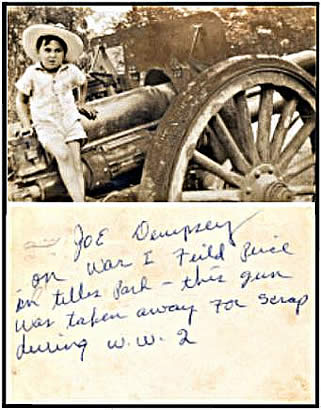 Joe Dempsey
on War I Feild Peice
in Tilles Park - this gun
was taken away for scrap
during W.W. 2